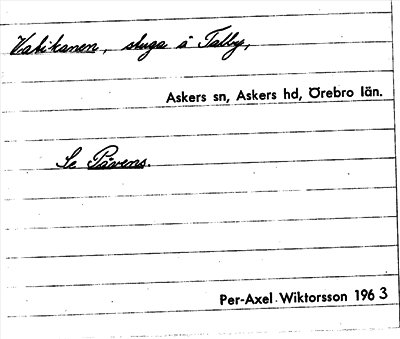 Vatikanen, stuga å Talby,
Askers sn, Askers hd, Örebro län.
Se Påvens.
Per-Axel Wiktorsson 1963